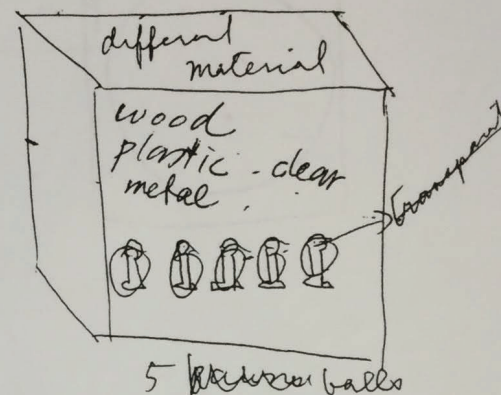 different
material
wood
plastic - clear
metal
transpart
5 balls